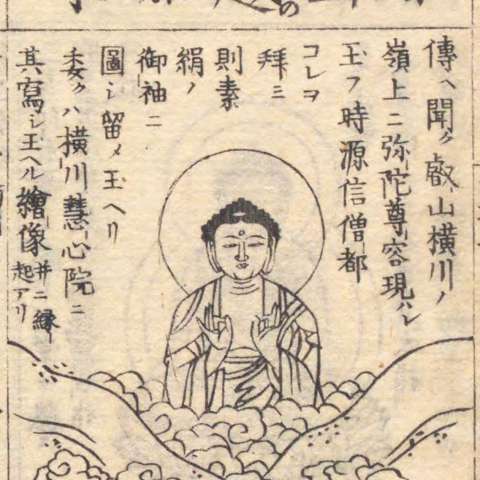 傳ヘ聞ク叡山横川ノ
嶺上ニ弥陀尊容現ハレ
玉フ時源信僧都
コレヲ
拜ミ
則素
絹ノ
御袖ニ
圖シ留メ玉ヘリ
委クハ横川慧心院ニ
其寫シ玉ヘル繪像并ニ縁
起アリ